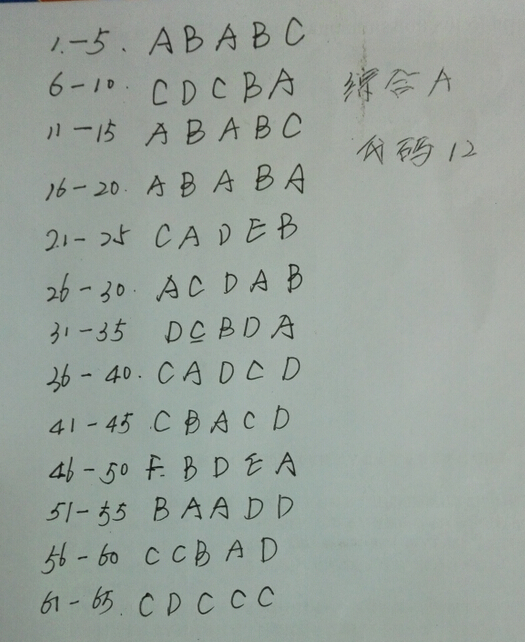 1.-5. A B A B C
6-10. C D C B A
综合A
11-15 A B A B C
代码12
16-20. A B A B A
21-25 C A D E B
26-30. A C D A B
31-35 D C B D A
36-40. C A D C D
41-45 C B A C D
46-50 F B D E A
51-55 B A A D D
56-60 C C B A D
61-65. C D C C C